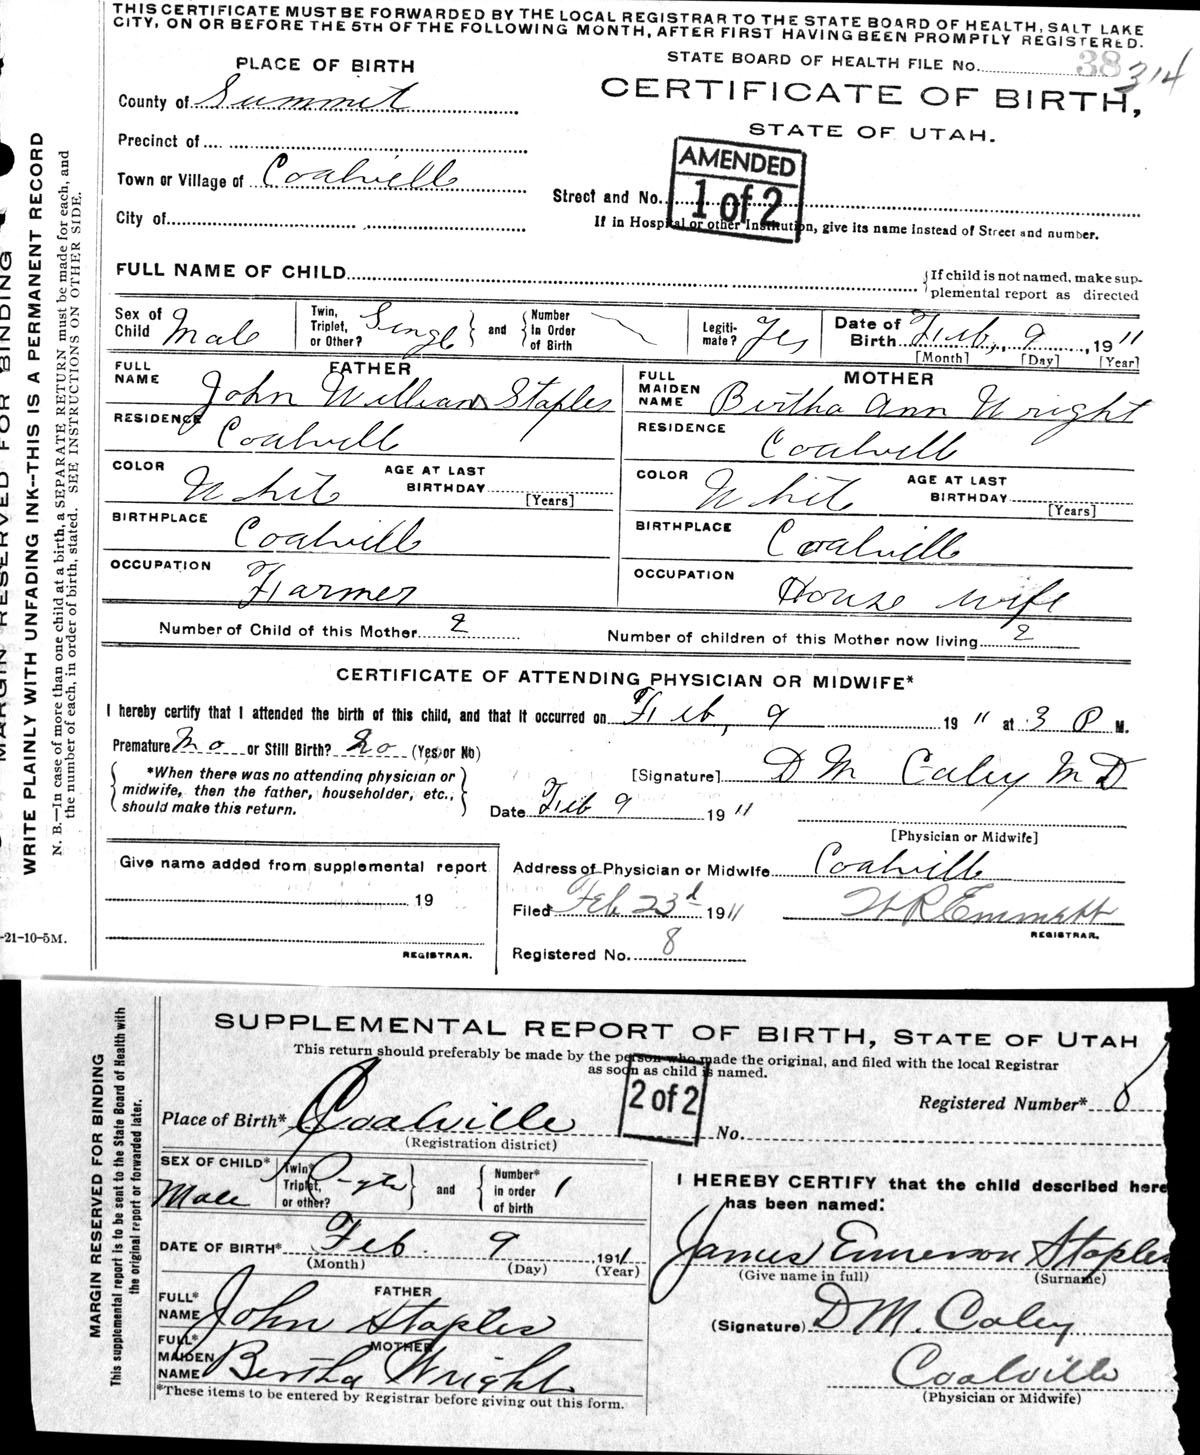 THIS CERTIFICATE MUST BE FORWARDED BY THE LOCAL REGISTRAR TO THE STATE BOARD OF HEALTH, SALT LAKE
CITY, ON OR BEFORE THE 5TH OF THE FOLLOWING MONTH, AFTER FIRST HAVING BEEN PROMPTLY REGISTERED.
STATE BOARD OF HEALTH FILE No. 38 314
PLACE OF BIRTH
CERTIFICATE OF BIRTH,
STATE OF UTAH.
County of Summit
Precinct of
Town or Village of Coalville
City of
AMENDED
1 of 2
Street and No.
If in Hospital or other Institution, give its name instead of Street and number.
FULL NAME OF CHILD
{If child is not named, make sup-
plemental report as directed
Sex of Child Male
Twin, Triplet, or Other? Single } and { Number in Order of Birth
Legiti-mate? Yes
Date of Birth Feb, 9, 1911
[Month] [Day] [Year]
FATHER
FULL NAME John William Staples
RESIDENCE Coalville
COLOR White AGE AT LAST BIRTHDAY [Years]
BIRTHPLACE Coalville
OCCUPATION Farmer
MOTHER
FULL MAIDEN NAME Bertha Ann Wright
RESIDENCE Coalville
COLOR White AGE AT LAST BIRTHDAY [Years]
BIRTHPLACE Coalville
OCCUPATION House wife
Number of Child of this Mother 2 Number of children of this Mother now living 2
CERTIFICATE OF ATTENDING PHYSICIAN OR MIDWIFE*
I hereby certify that I attended the birth of this child, and that it occurred on Feb, 9 1911 at 3 P M.
Premature No or Still Birth? No (Yes or No)
{ *When there was no attending physician or
midwife, then the father, householder, etc.,
should make this return. }
[Signature] D M Caley M D
Date Feb 9 1911
[Physician or Midwife]
Give name added from supplemental report
19
REGISTRAR.
Address of Physician or Midwife Coalville
Filed Feb. 23d 1911 W R Emmett
REGISTRAR.
Registered No. 8
MARGIN RESERVED FOR BINDING
WRITE PLAINLY WITH UNFADING INK--THIS IS A PERMANENT RECORD
N. B.—In case of more than one child at a birth, a SEPARATE RETURN must be made for each, and
the number of each, in order of birth, stated. SEE INSTRUCTIONS ON OTHER SIDE.
-21-10-5M.
SUPPLEMENTAL REPORT OF BIRTH, STATE OF UTAH
This return should preferably be made by the person who made the original, and filed with the local Registrar
as soon as child is named.
2 of 2
Registered Number* 8
Place of Birth* Coalville No.
(Registration district)
SEX OF CHILD* Male
Twin* Triplet, or other? } and { Number* in order of birth 1
DATE OF BIRTH* Feb. 9 1911
(Month) (Day) (Year)
FATHER
FULL* NAME John Staples
MOTHER
FULL* MAIDEN NAME Bertha Wright
*These items to be entered by Registrar before giving out this form.
I HEREBY CERTIFY that the child described here
has been named:
James Emerson Staples
(Give name in full) (Surname)
(Signature) D M. Caley
Coalville
(Physician or Midwife)
MARGIN RESERVED FOR BINDING
This supplemental report is to be sent to the State Board of Health with
the original report or forwarded later.